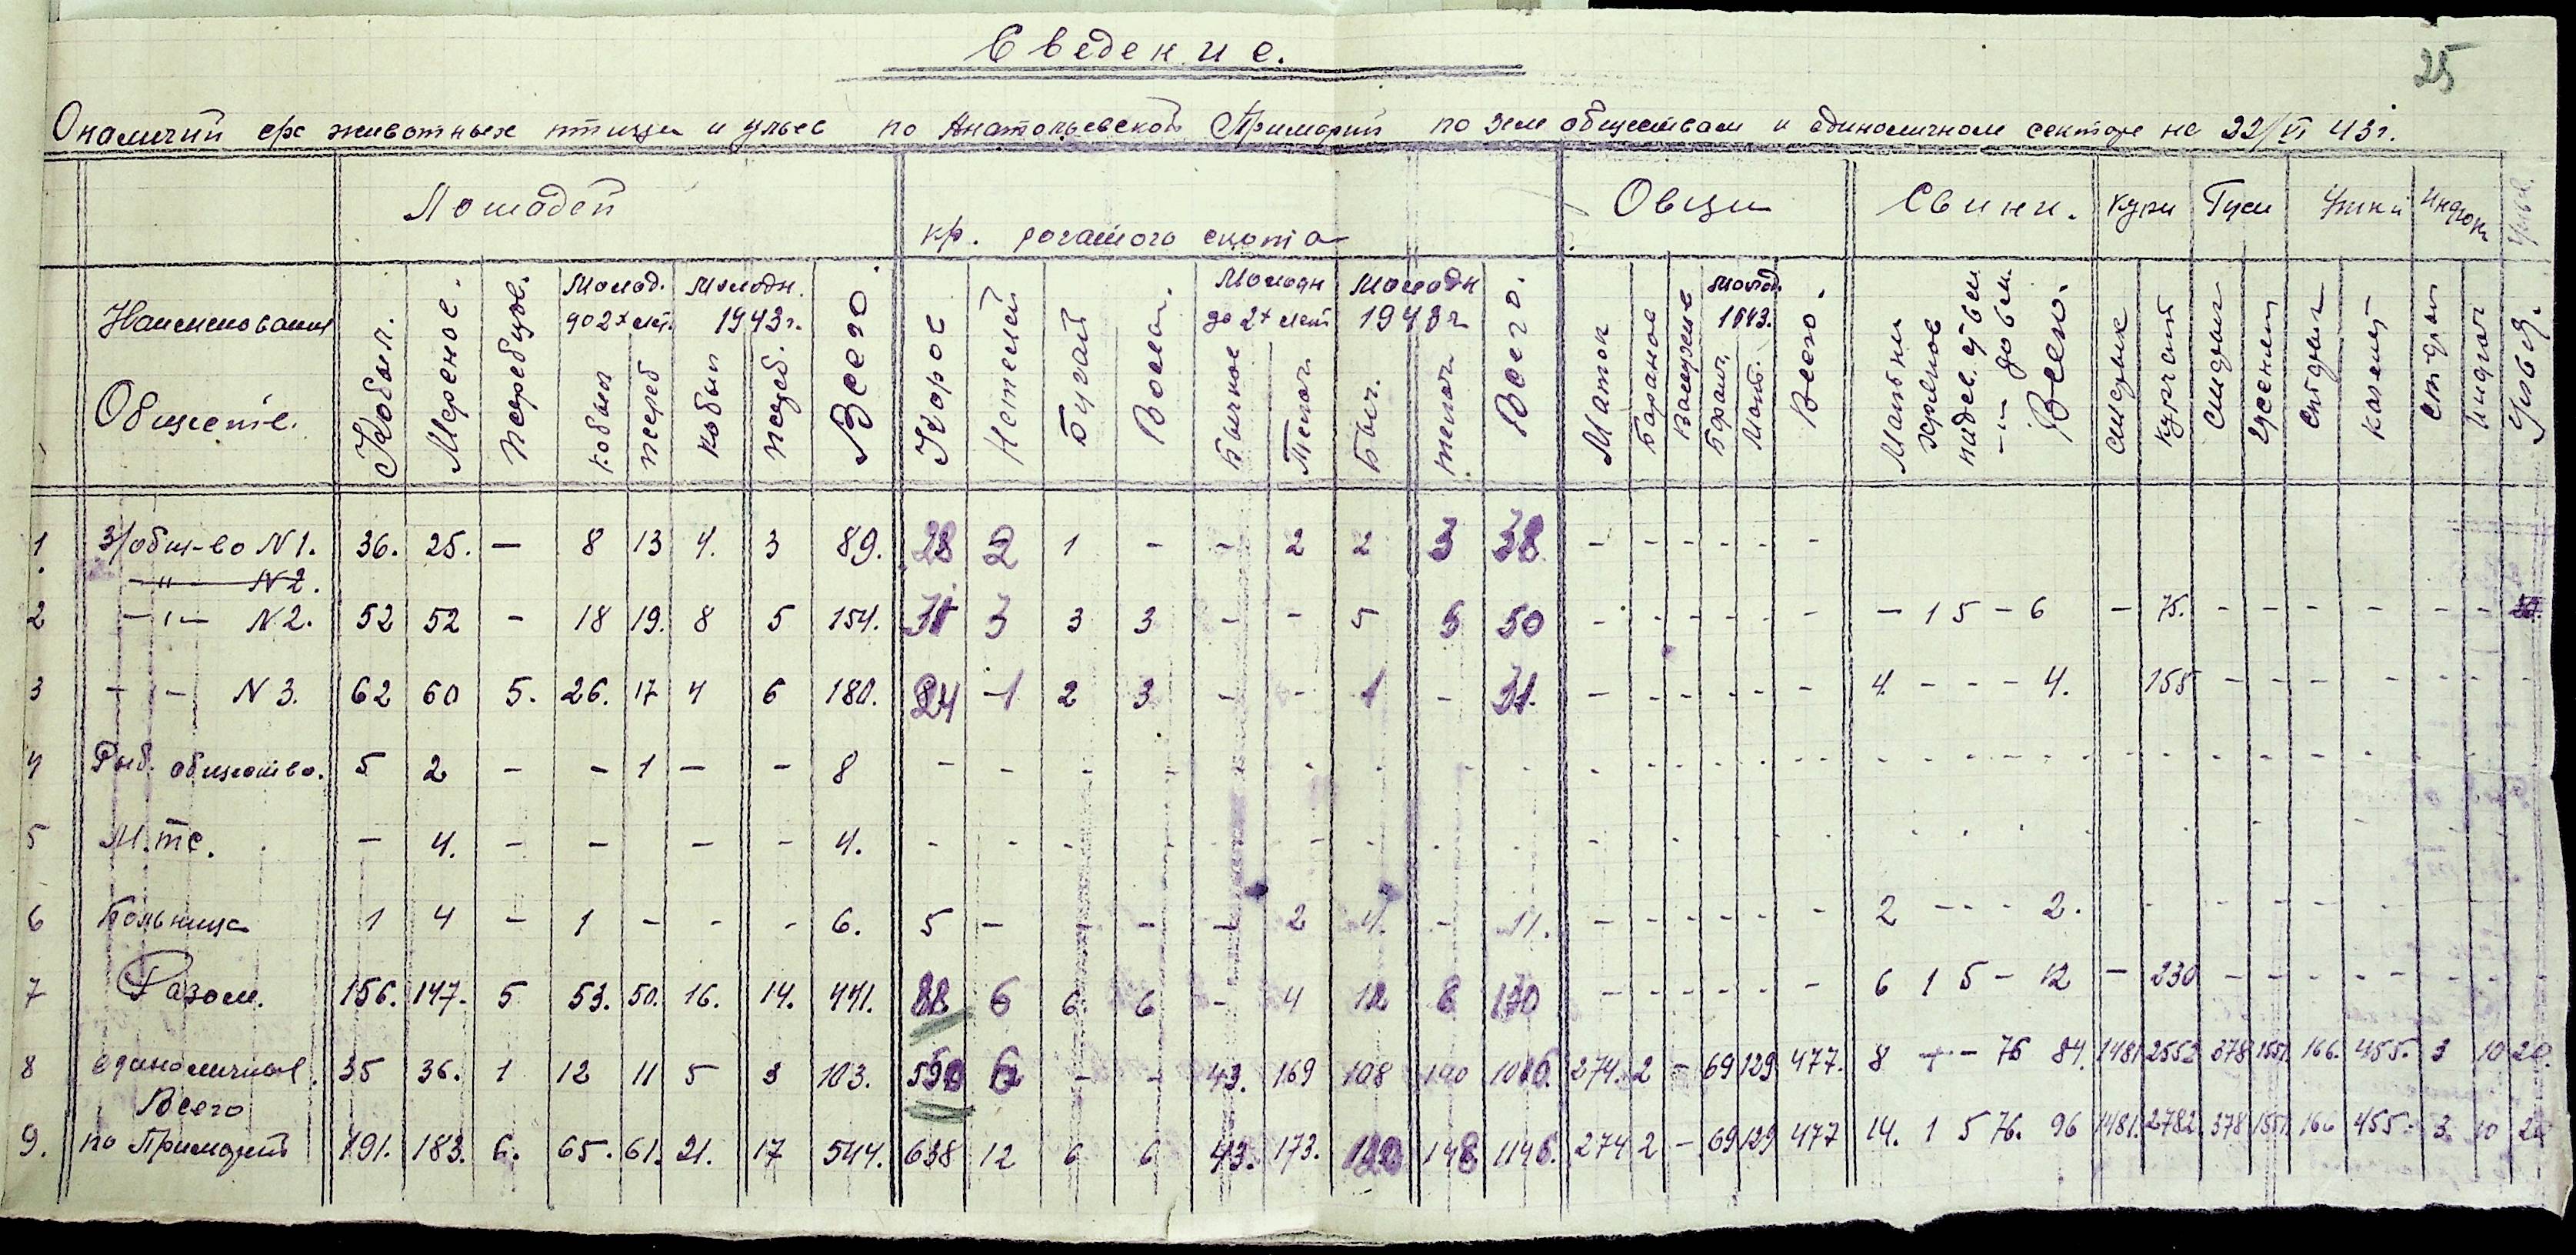 25
Сведение.
О наличии с/х животных птицы и ульев по Анатольевской Примарии по зем обществам и единоличном секторе на 22/VI 43 г.
Лошадей кр. рогатого скота Овцы Свини. куры Гуси Утки Индюки
Наименования Обществ.
Кобыл. Меренов. Жеребцов. Молод. до 2х лет. кобыл жереб Молодн. 1943 г. кобыл жереб. Всего.
Коров Нетелей Бугай Волы. Молодн до 2х лет Бычков Телоч Молодн 1943 г Быч. телоч Всего.
Маток Баранов Валухов Молод. 1943. Баран. Мат. Всего.
Матки хряков до 6 м Всего.
кучат гусенят качат
1 З/общ-во N 1. 36. 25. – 8 13 4. 3 89. 28 2 1 – – 2 2 3 38 – – – – – –
–"– N 2.
2 –"– N 2. 52 52 – 18 19. 8 5 154. 31 3 3 3 – – 5 5 50 – – – – – – – 1 5 – 6 – 75. – – – – – –
3 – – N 3. 62 60 5. 26. 17 4 6 180. 24 1 2 3 – – 1 – 31. – – – – – – 4 – – – 4. 155 – – – – – – –
4 Рыб. общество. 5 2 – – 1 – – 8 – – – – – – – – – – – – – – – – – – – – – – – – – – – – –
5 М.т.с. – 4. – – – – 4. – – – – – – – – –
6 Больница 1 4 – 1 – – – 6. 5 – – – – 2 4. – 11. – – – – – – 2 – – – 2. – – – – – – –
7 Разом. 156. 147. 5 53. 50. 16. 14. 441. 88 6 6 6 – 4 12 8 130 – – – – – – 6 1 5 – 12 – 230 – – – – – – –
8 единоличнов. 35 36. 1 12 11 5 3 103. 550 6 – – 43. 169 108 140 1016. 274. 2 – 69 129 477. 8 – – 76 84. 1481. 2552 378 1551. 166. 455. 3 10 20.
Всего
9. по Примарии 191. 183. 6. 65. 61. 21. 17 544. 638 12 6 6 43. 173. 120 148 1146. 274 2 – 69 129 477 14. 1 5 76. 96 1481. 2782. 378 1551. 166 455. 3. 10 20